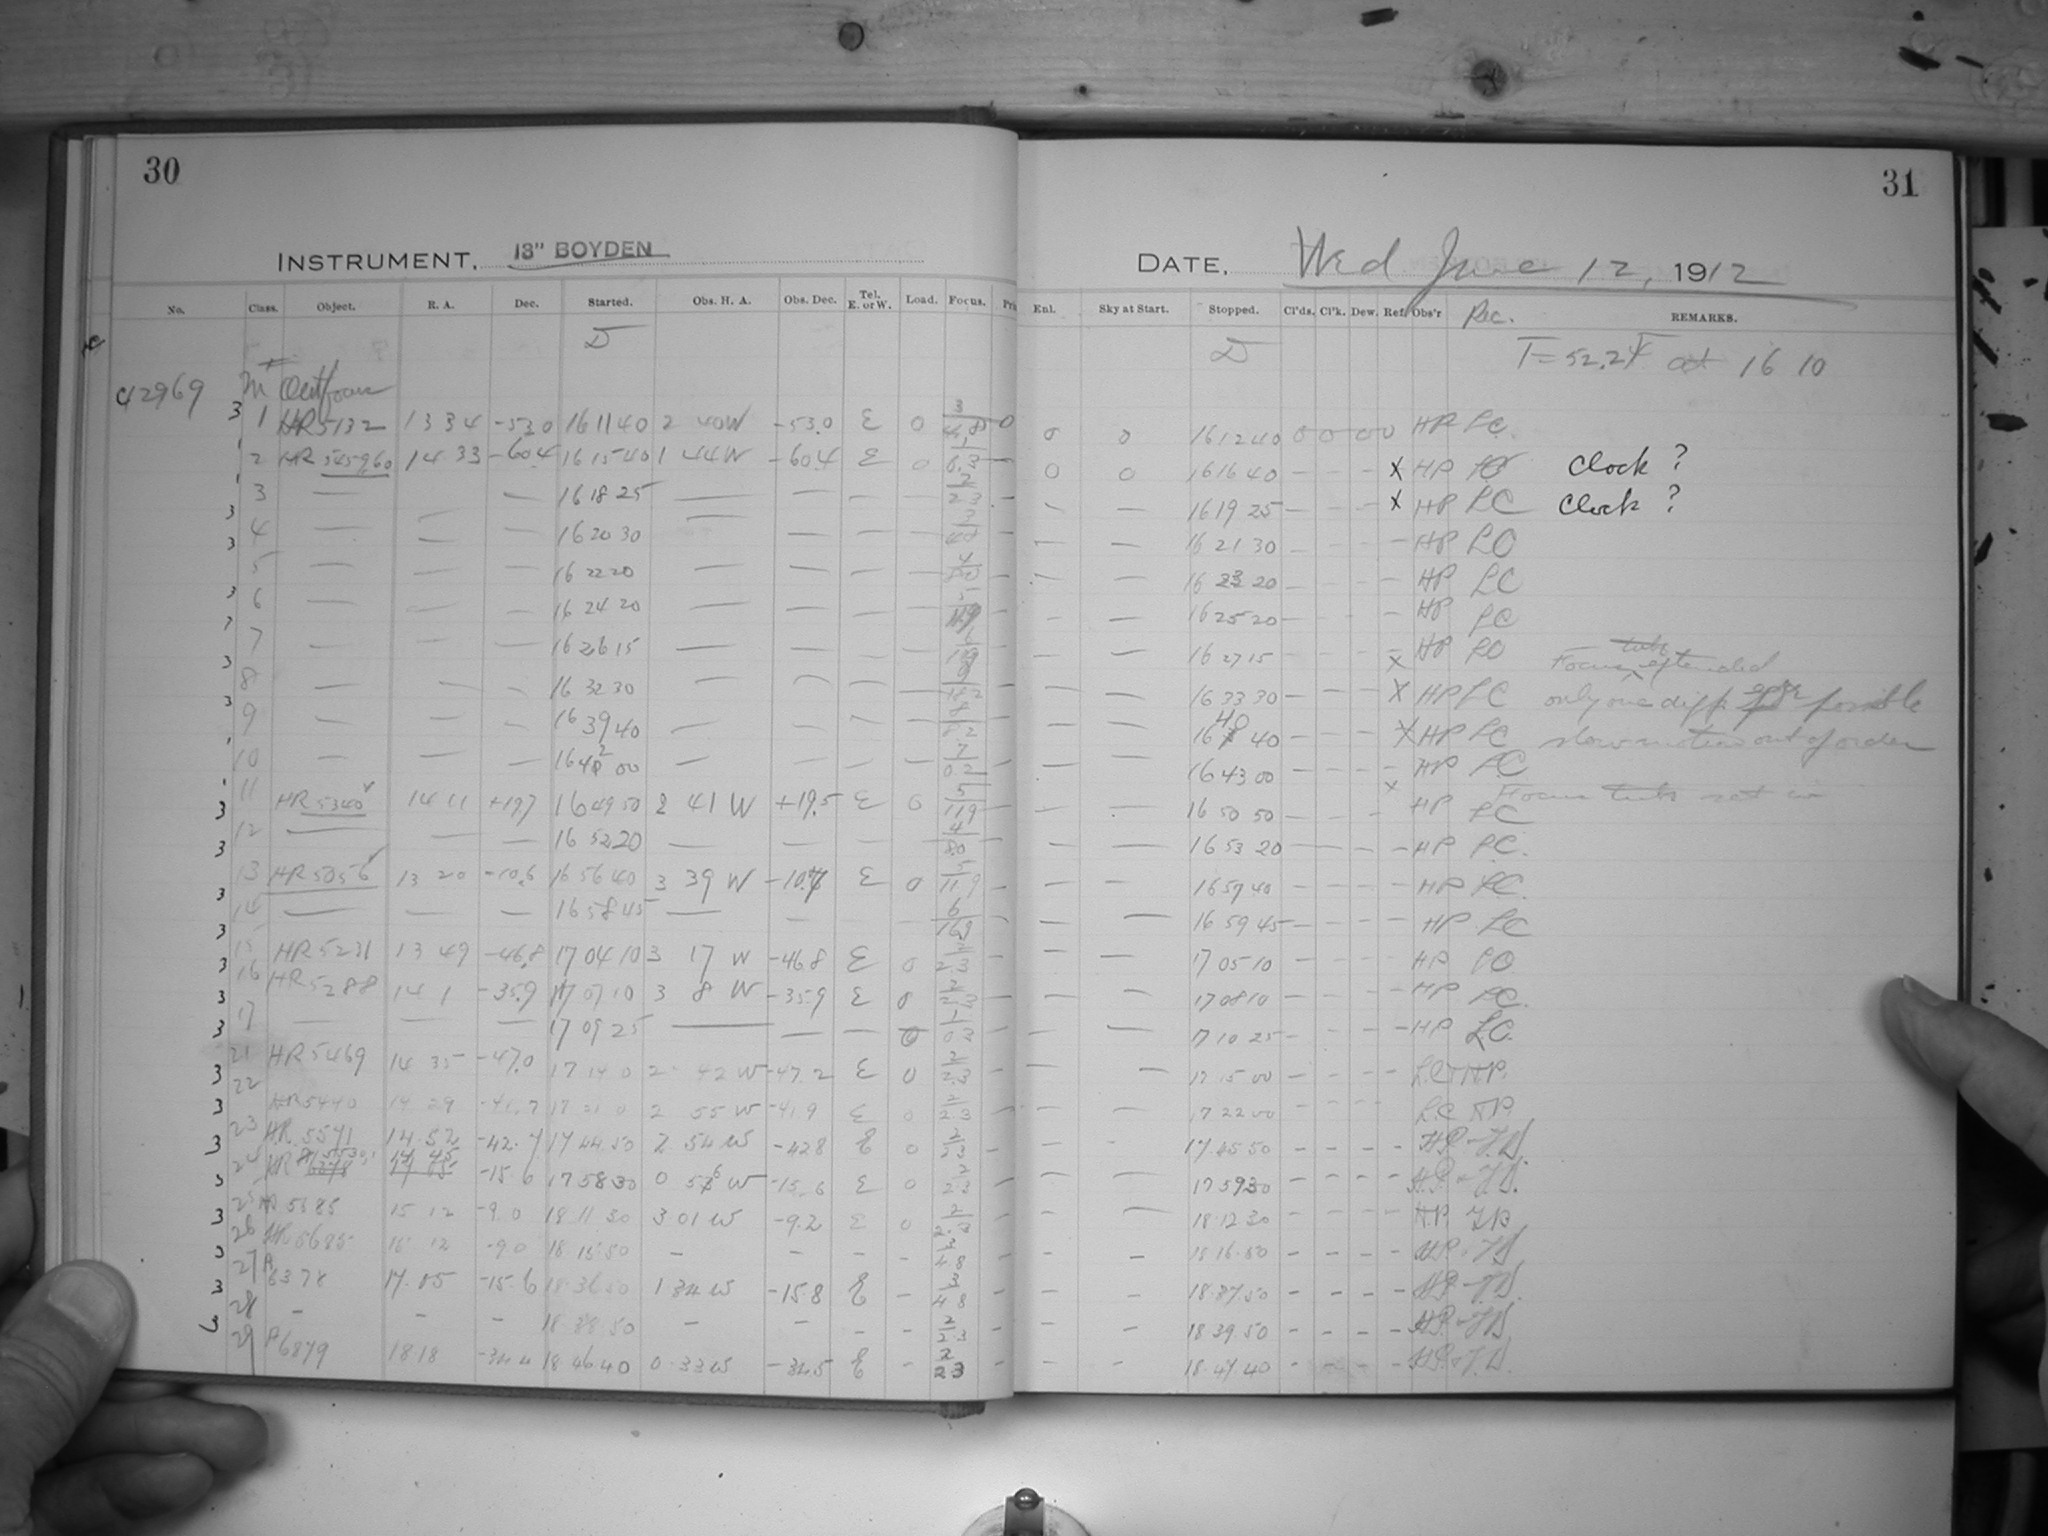 30
INSTRUMENT. 13" BOYDEN
No. Class. Object. R. A. Dec. Started. Obs. H. A. Obs. Dec. Tel. E. or W. Load. Focus.
D
C42969 Out focus
3 1 HR5132 13 34 -53.0 16 11 40 2 40W -53.0 E 0 3 0
1 2 HR 5459,60 14 33 -60.4 16 15 40 1 44W -60.4 E 0 1 —
1 3 — — — 16 18 25 — — — — 2 2.3 —
3 4 — — — 16 20 30 — — — — 3
3 5 — — — 16 22 20 — — — — 4 —
3 6 — — — 16 24 20 — — — —
7 — — — 16 26 15 — — — —
3 8 — — — 16 32 30 — — — —
3 9 — — — 16 39 40 — — — —
1 10 — — — 16 42 00 — — — — —
11 HR 5340 14 11 +19.7 16 49 50 2 41 W +19.5 E 0 5 11.9 —
3 12 — — — 16 52 20 — — — — 4 8.0 —
3 13 HR 5056 13 20 -10.6 16 56 40 3 39 W E 0 5 11.9 —
3 14 — — — 16 58 45 — — — 6 16.9 —
3 15 HR 5231 13 49 -46.8 17 04 10 3 17 W -46.8 E 0 2.3 —
3 16 HR 5288 14 1 -35.9 17 07 10 3 8 W -35.9 E 0 2 2.3 —
3 17 — — — 17 09 25 — — — 0 1 0.3 —
3 21 HR 5469 14 35 -47.0 17 14 0 2 42 W -47.2 E 0 2 2.3 —
3 22 HR 5440 14 29 -41.7 17 21 0 2 55 W -41.9 E 0 2 2.3 —
3 23 HR 5571 14.52 -42.7 17 44.50 2 54 W -42.8 E 0 2 2.3 —
3 24 HR -15.6 17 58 30 0 W -15.6 E 0 2 2.3 —
3 25 5685 15 12 -9.0 18 11 30 3 01 W -9.2 E 0 2 2.3 —
3 26 HR 5685 15 12 -9.0 18 15 50 — — — — 3 4.8 —
3 27 R 6378 17.05 -15.6 18.36 50 1.34 W -15.8 E — 3 4 8 —
3 28 — — — 18 38.50 — — — — 2 2.3 —
3 29 R 6879 18.18 18.46 40 0.33 W -34.5 E — 2 2 3 —
31
DATE, Wed June 12, 1912
Enl. Sky at Start. Stopped. Cl'ds. Cl'k. Dew. Ref. Obs'r Rec. REMARKS.
D T=52.2F at 16 10
0 0 16 12 40 0 0 0 0 HP LC.
0 0 16 16 40 — — — X HP LC Clock ?
— — 16 19 25 — — — X HP LC Clock ?
— — 16 21 30 — — — — HP LC
— — 16 23 20 — — — — HP LC
— — 16 25 20 — — — HP LC
— — 16 27 15 X HP LC Focus tube extended
— — 16 33 30 — — — X HP LC only one diff possible
— — 16 40 40 — — — X HP LC slow motion out of order
— — 16 43 00 — — — — HP LC
— — 16 50 50 — — — X HP LC Focus tube set in
— — 16 53 20 — — — — HP LC.
— — 16 57 40 — — — — HP LC.
— — 16 59 45 — — — — HP LC
— — 17 05 10 — — — — HP LC
— — 17 08 10 — — — — HP LC.
— — 17 10 25 — — — — HP LC.
— — 17 15 00 — — — — LC HP.
— — 17 22 00 — — — — LC HP.
— — 17.45.50 — — — —
— — 17 59 30 — — — —
— — 18.12 30 — — — —
— — 18 16.50 — — — —
— — 18.37.50 — — — —
— — 18 39.50 — — — —
— — 18.47.40 — — — —